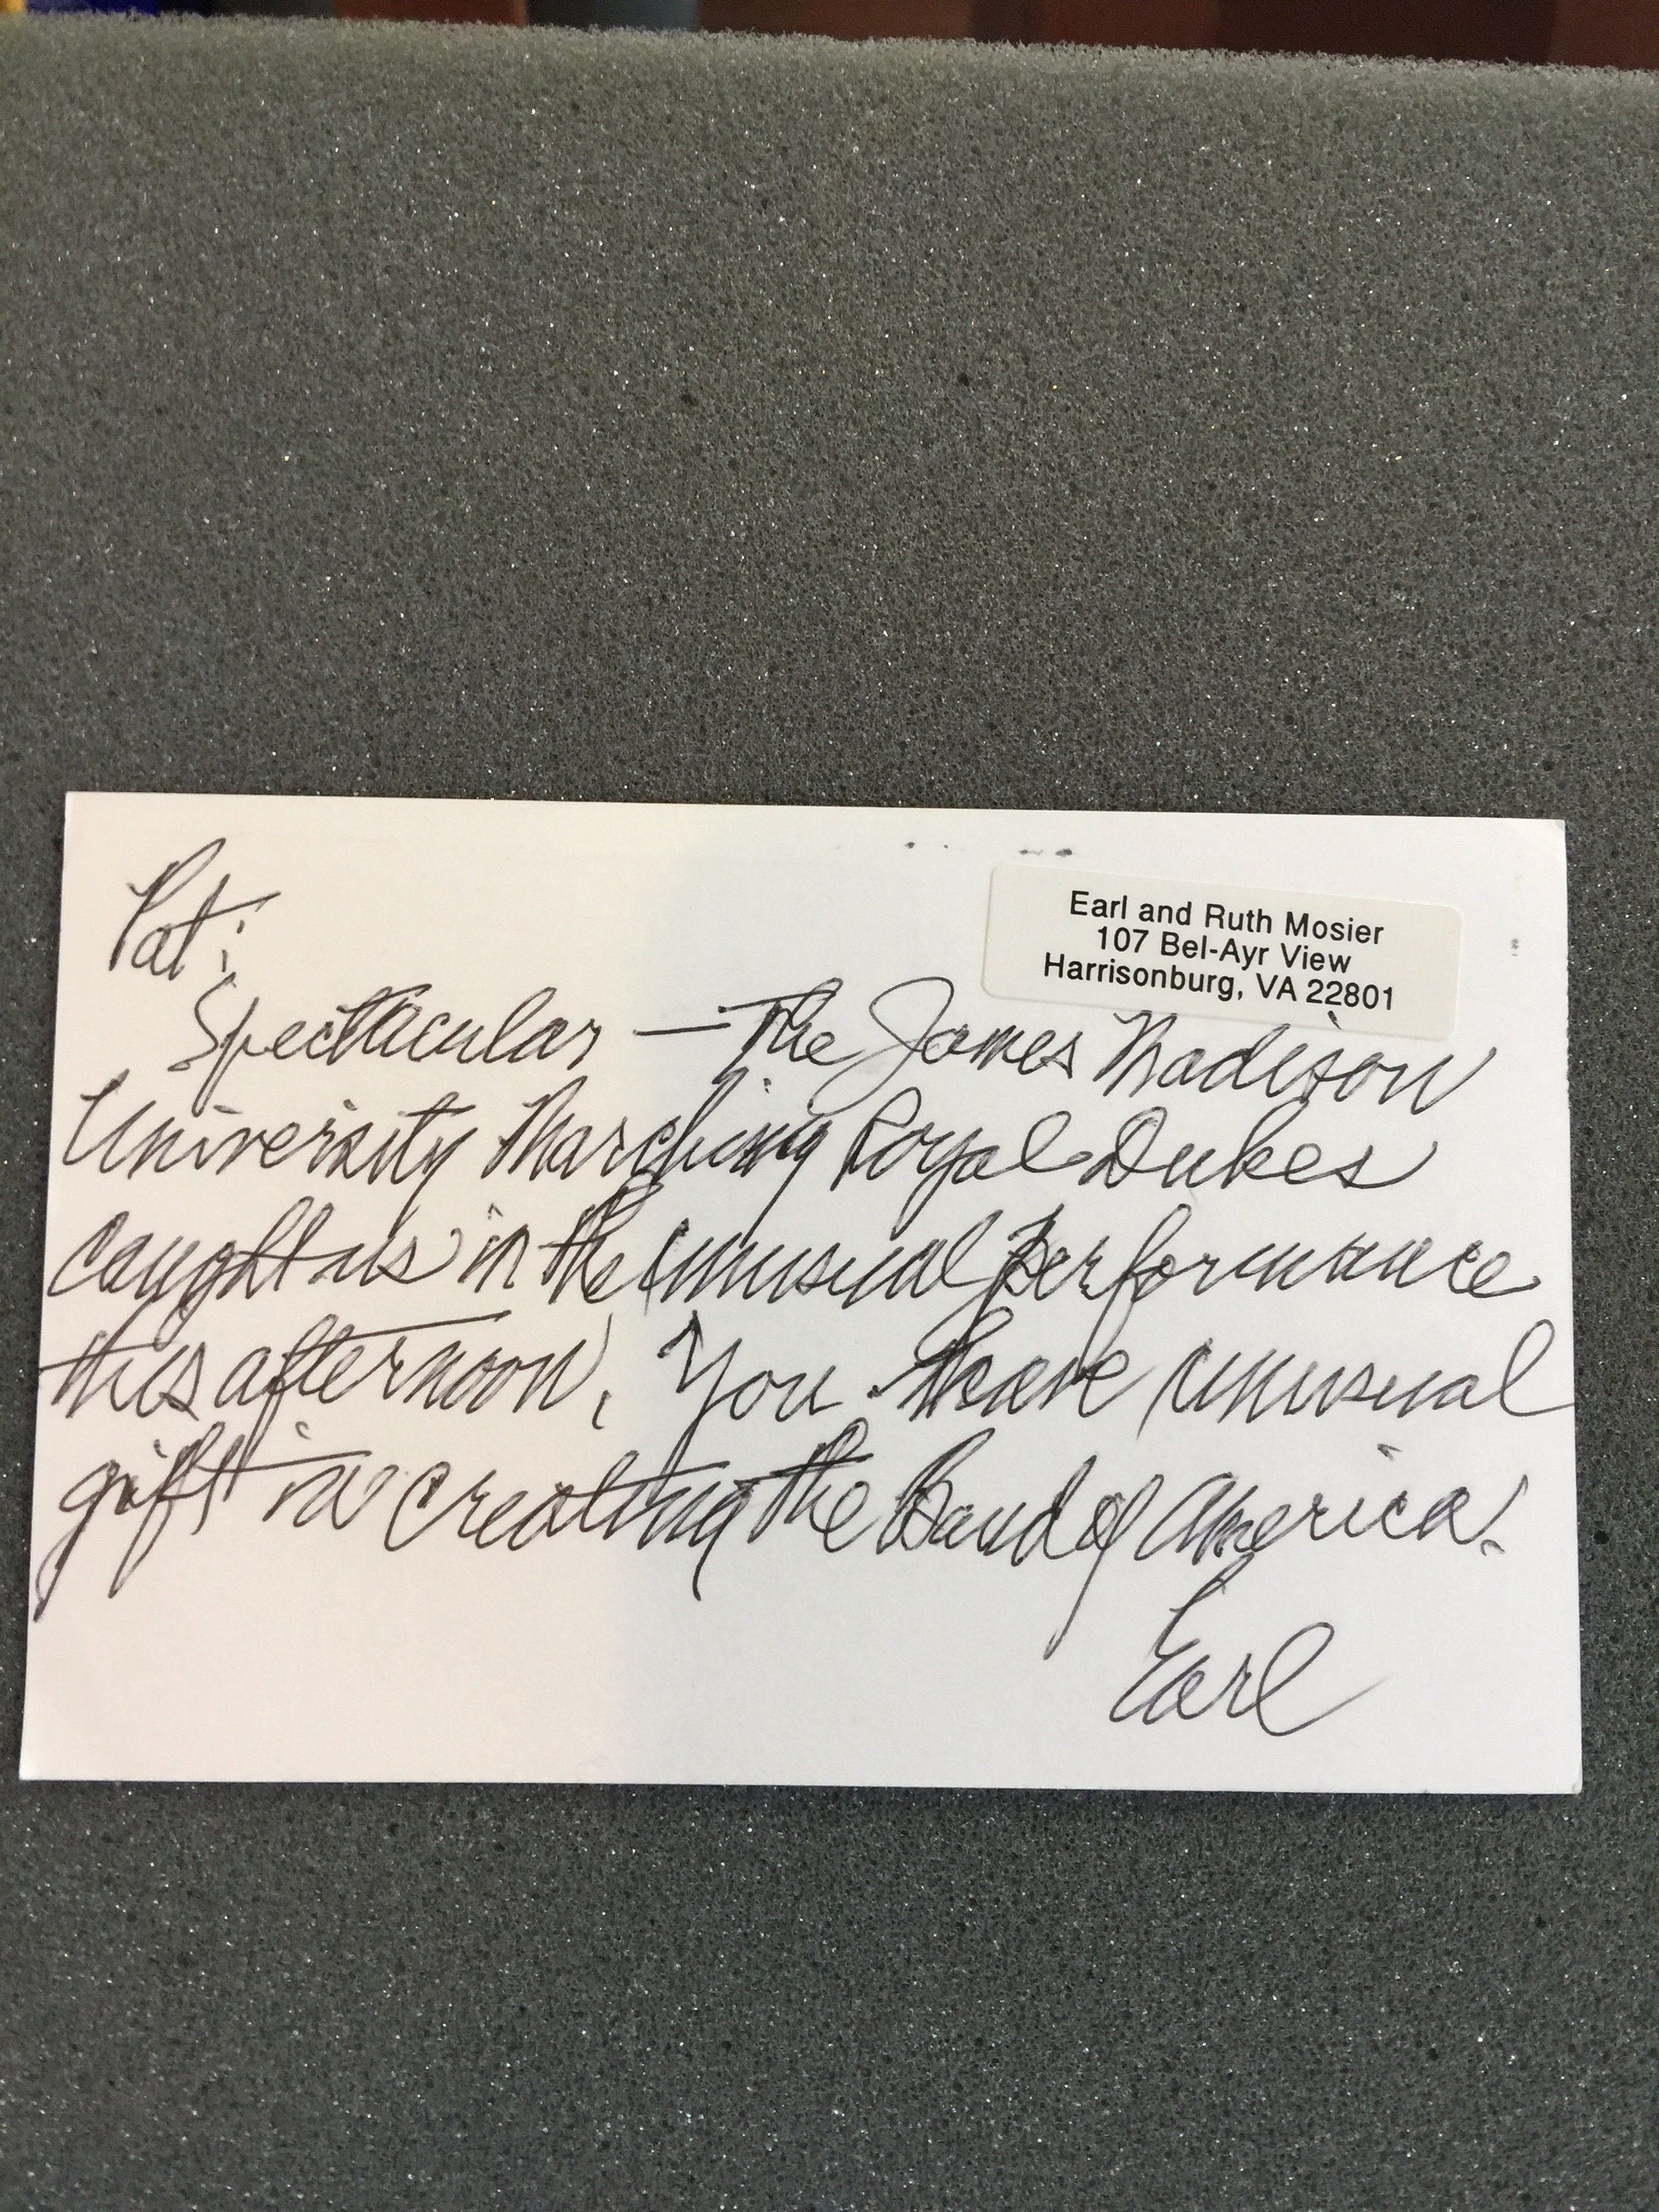 Pat:
Earl and Ruth Mosier
107 Bel-Ayr View
Harrisonburg, VA 22801
Spectacular — The James Madison
University Marching Royal Dukes
caught us in the unusual performance
this afternoon. You have unusual
gift in creating the Band of America.
Earl